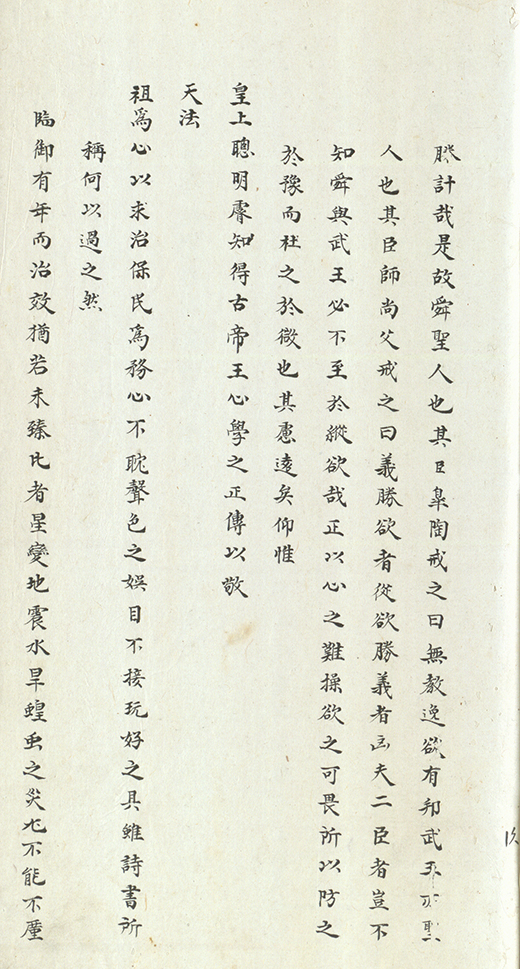 勝計哉是故舜聖人也其臣皐陶戒之曰無教逸欲有邦武王亦聖
人也其臣師尚父戒之曰義勝欲者從欲勝義者凶夫二臣者豈不
知舜與武王必不至於縱欲哉正以心之難操欲之可畏所以防之
於豫而杜之於微也其慮逺矣仰惟
皇上聰明睿知得古帝王心學之正傳以敬
天法
祖爲心以求治保民爲務心不耽聲色之娛目不接玩好之具雖詩書所
稱何以過之然
臨御有年而治效猶若未臻比者星變地震水旱蝗虫之災尤不能不廑